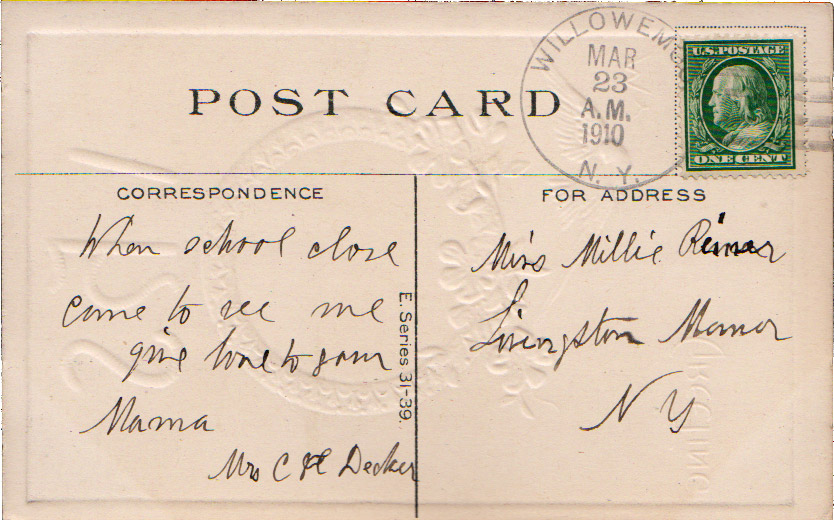 WILLOWEMOC
MAR
23
A.M.
1910
N. Y.
U.S. POSTAGE
ONE CENT
POST CARD
CORRESPONDENCE
When school close
come to see me
give love to your
Mama
Mrs C H Decker
E. Series 31-39.
FOR ADDRESS
Miss Millie
Livingston Manor
N Y